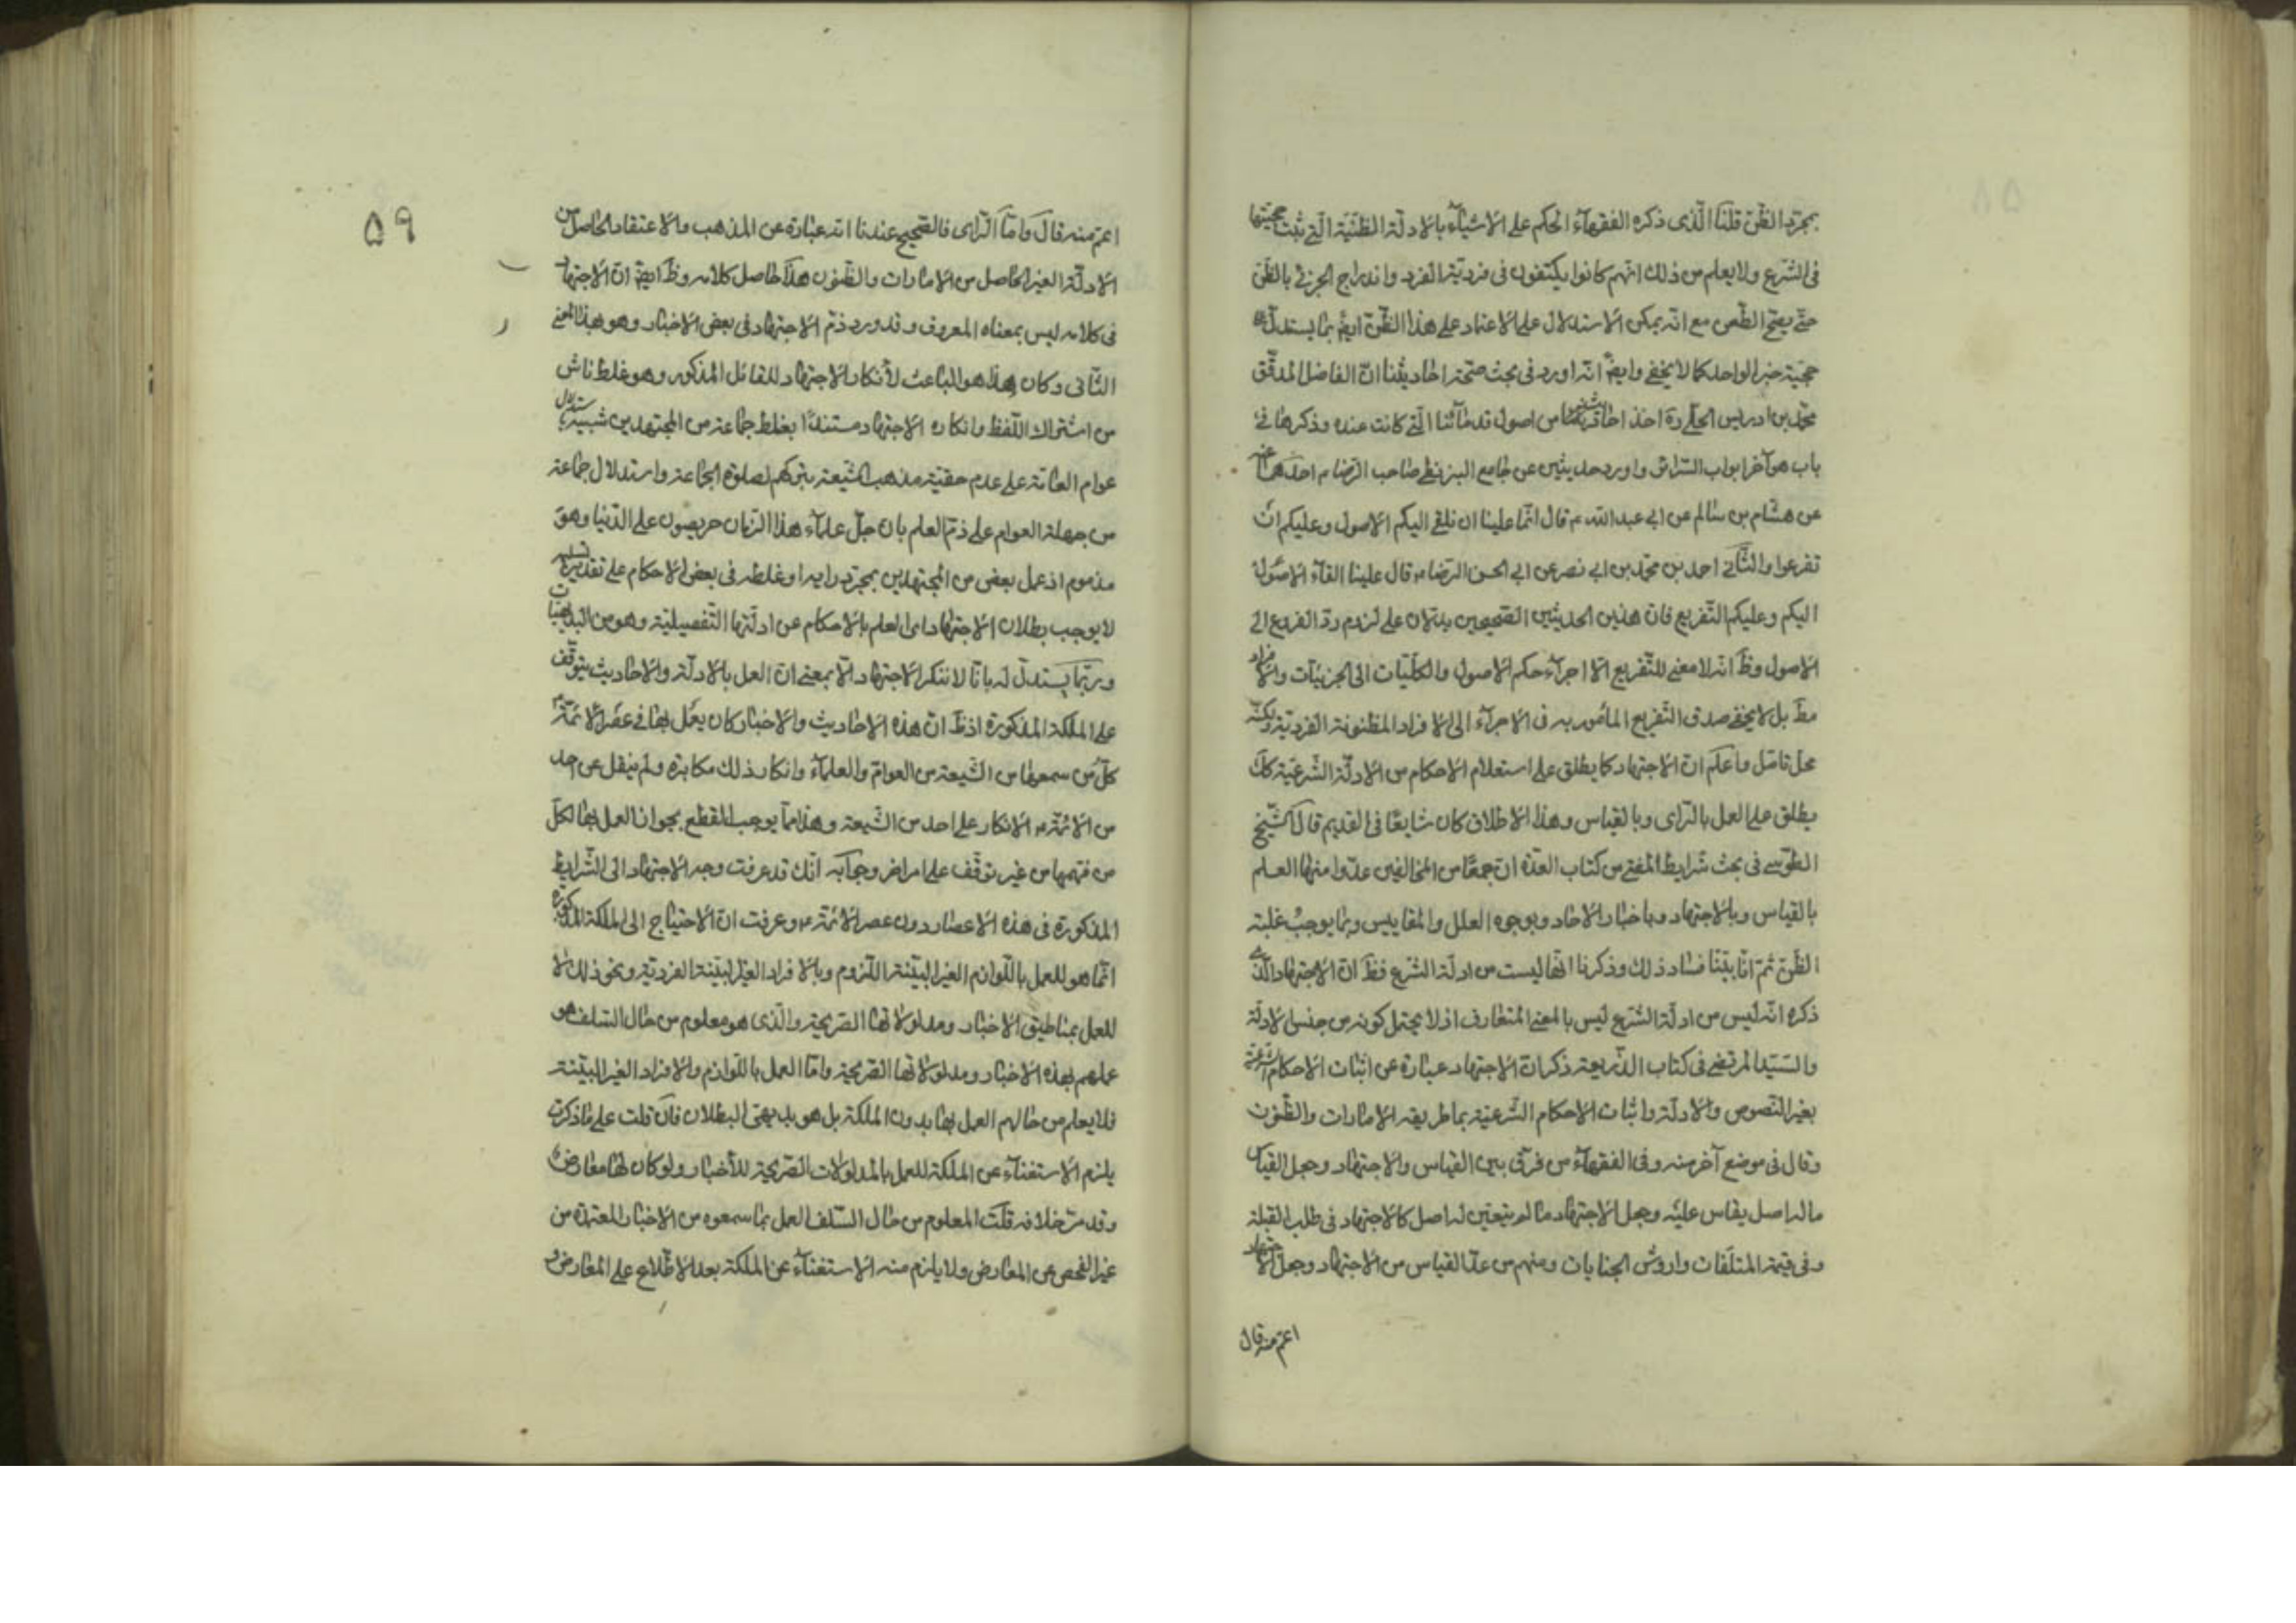 بمجرد الظن قلنا الذى ذكره الفقهاء الحكم على الاشياء بالادلة الظنية التى ثبت حجيتها
فى الشرع ولا يعلم من ذلك انهم كانوا يكتفون فى فردية الفرد واندراج الجزئى بالظن
حتى يصح الطعن مع انه يمكن الاستدلال على الاعتماد على هذا الظن ايضا بما يستدل به
حجية خبر الواحد كما لا يخفى وايضا انه اورد فى بحث صحة احاديثنا ان الفاضل المدقق
محمد بن ادريس الحلى ره اخذ احاديث من اصول قدمائنا التى كانت عنده وذكرها فى
باب هو آخر ابواب السرائر واورد حديثين عن جامع البزنطى صاحب الرضا م احدهما عنه
عن هشام بن سالم عن ابى عبد الله م قال انما علينا ان نلقى اليكم الاصول وعليكم ان
تفرعوا والثانى احمد بن محمد بن ابى نصر عن ابى الحسن الرضا م قال علينا القاء الاصول
اليكم وعليكم التفريع فان هذين الحديثين الصحيحين يدلان على لزوم رد الفروع الى
الاصول وظ انه لا معنى للتفريع الا اجراء حكم الاصول والكليات الى الجزئيات والافراد
مط بل لا يخفى صدق التفريع المأمور به فى الاجراء الى الافراد المظنونة الفردية ولكنه
محل تامل واعلم ان الاجتهاد كما يطلق على استعلام الاحكام من الادلة الشرعية كك
يطلق على العمل بالراى وبالقياس وهذا الاطلاق كان شايعا فى القديم قال الشيخ
الطوسى فى بحث شرايط المفتى من كتاب العدة ان جمعا من المخالفين عدوا منها العلم
بالقياس وبالاجتهاد وباخبار الاحاد وبوجوه العلل والمقاييس وبما يوجب غلبة
الظن ثم انا بينا فساد ذلك وذكرنا انها ليست من ادلة الشرع فظ ان الاجتهاد الذى
ذكره انه ليس من ادلة الشرع ليس بالمعنى المتعارف اذ لا يحتمل كونه من جنس الادلة
والسيد المرتضى فى كتاب الذريعة ذكر ان الاجتهاد عبارة عن اثبات الاحكام الشرعية
بغير النصوص والادلة واثبات الاحكام الشرعية بما طريقه الامارات والظنون
وقال فى موضع آخر منه وفى الفقهاء من فرق بين القياس والاجتهاد وجعل القياس
ما له اصل يقاس عليه وجعل الاجتهاد ما لم يتعين له اصل كالاجتهاد فى طلب القبلة
وفى قيمة المتلفات واروش الجنايات ومنهم من عد القياس من الاجتهاد وجعل الاجتهاد
اعم منه قال
۵۹
اعم منه قال واما الراى فالصحيح عندنا انه عبارة عن المذهب والاعتقاد الحاصل من
الادلة الغير الحاصل من الامارات والظنون هذا حاصل كلامه وظ ايضا ان الاجتهاد
فى كلامه ليس بمعناه المعروف وقد ورد ذم الاجتهاد فى بعض الاخبار وهو بهذا المعنى
الثانى وكان هذا هو الباعث لانكار الاجتهاد للقائل المذكور وهو غلط ناش
من اشتراك اللفظ وانكاره الاجتهاد مستندا بغلط جماعة من المجتهدين شبيه باستدلال
عوام العامة على عدم حقية مذهب الشيعة بتركهم لصلوة الجماعة واستدلال جماعة
من جهلة العوام على ذم العلم بان جل علماء هذا الزمان حريصون على الدنيا وهو
مذموم اذ عمل بعض من المجتهدين بمجرد رايه او غلطه فى بعض الاحكام على تقدير تسليمه
لا يوجب بطلان الاجتهاد اى العلم بالاحكام عن ادلتها التفصيلية وهو من البديهيات
وربما يستدل له بانا لا ننكر الاجتهاد الا بمعنى ان العمل بالادلة والاحاديث يتوقف
على الملكة المذكورة اذ ظ ان هذه الاحاديث والاخبار كان يعمل بها فى عصر الائمة م
كل من سمعها من الشيعة من العوام والعلماء وانكار ذلك مكابرة ولم ينقل عن احد
من الائمة م الانكار على احد من الشيعة وهذا مما يوجب القطع بجواز العمل بها لكل
من فهمها من غير توقف على امر اخر وجوابه انك قد عرفت وجه الاجتهاد الى الشرايط
المذكورة فى هذه الاعصار دون عصر الائمة م وعرفت ان الاحتياج الى الملكة المذكورة
انما هو للعمل باللوازم الغير البينة اللزوم وبالافراد الغير البينة الفردية ونحو ذلك لا
للعمل بمناطيق الاخبار ومدلولاتها الصريحة والذى هو معلوم من حال السلف هو
عملهم بهذه الاخبار ومدلولاتها الصريحة واما العمل باللوازم والافراد الغير البينة
فلا يعلم من حالهم العمل بها بدون الملكة بل هو بديهى البطلان فان قلت على ما ذكرت
يلزم الاستغناء عن الملكة للعمل بالمدلولات الصريحة للاخبار ولو كان لها معارض
وقد مر خلافه قلت المعلوم من حال السلف العمل بما سمعوه من الاخبار المعتمدة من
غير الفحص عن المعارض ولا يلزم منه الاستغناء عن الملكة بعد الاطلاع على المعارض و